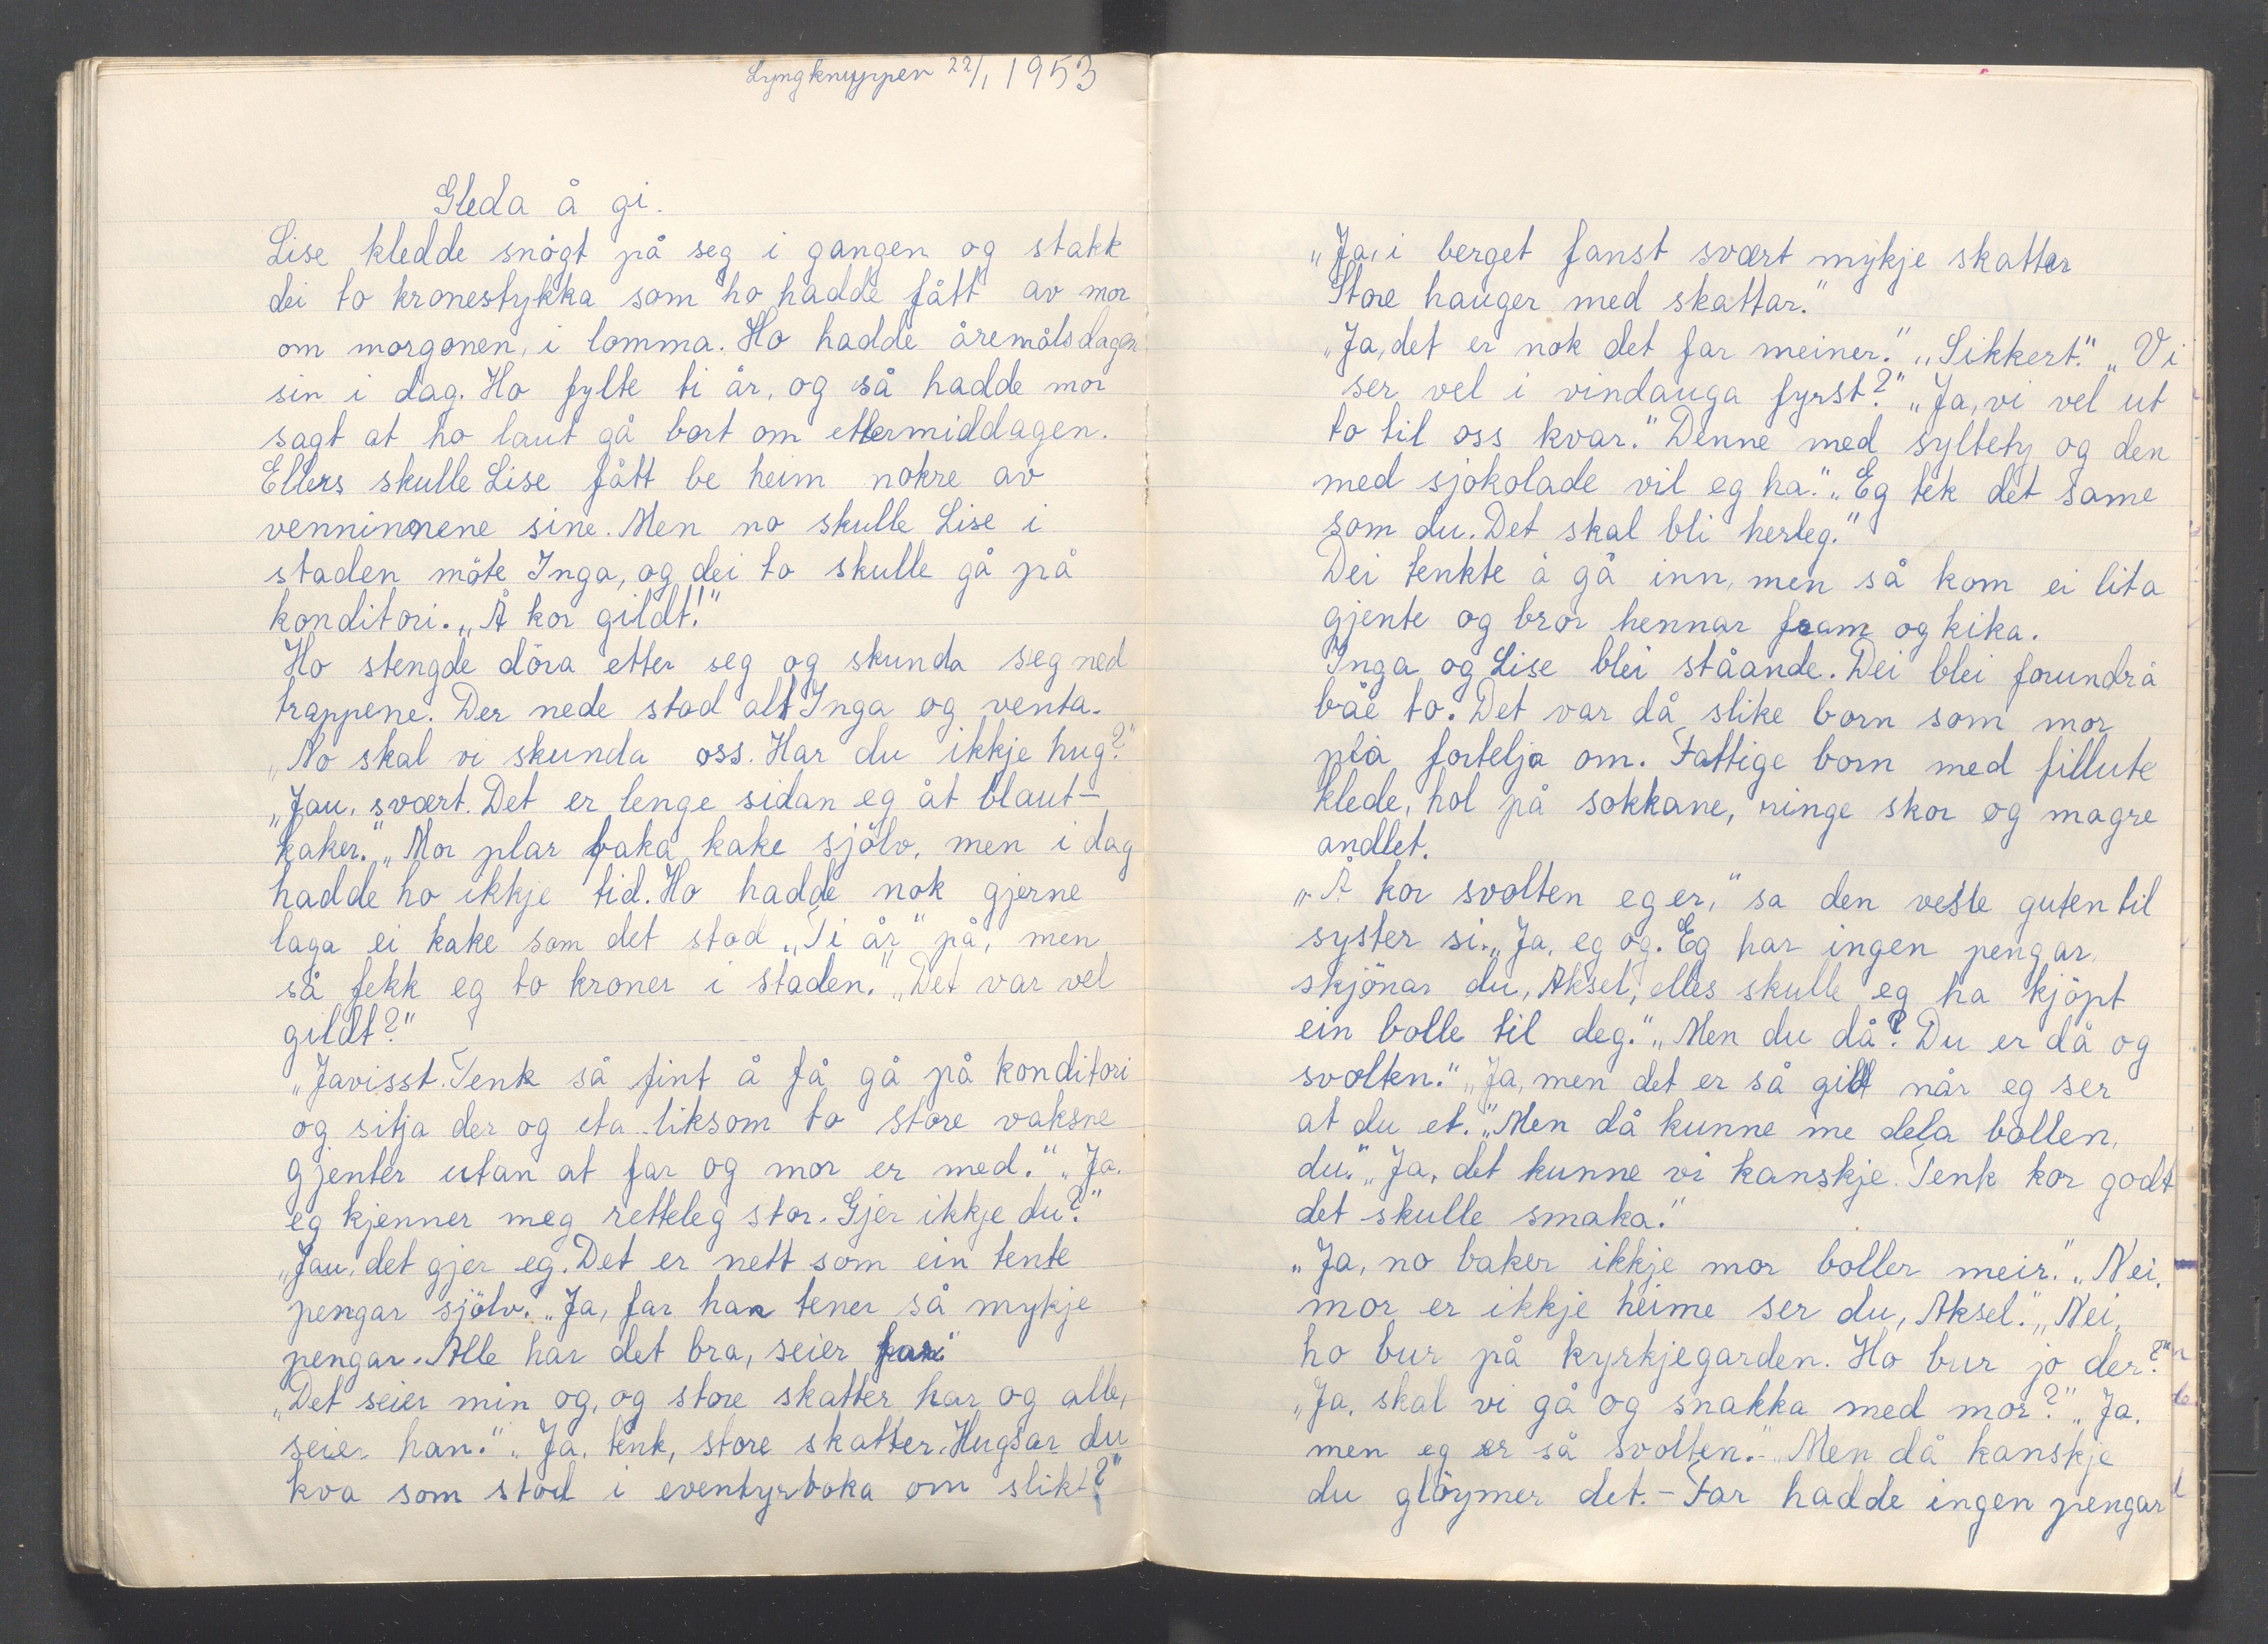 Lyngknuppen 22/1 1953
Gleda å gi.
Lise kledde snögt på seg i gangen og stakk
dei to kronestykka som ho hadde fått av mor
om morgonen, i lomma. Ho hadde åremålsdagen
sin i dag. Ho fylte ti år, og så hadde mor
sagt at ho laut gå bort om ettermiddagen.
Ellers skulle Lise fått be heim nokre av
venninnene sine. Men no skulle Lise i
staden möte Inga, og dei to skulle gå på
konditori. „Å kor gildt!"
Ho stengde döra etter seg og skunda seg ned
trappene. Der nede stod alt Inga og venta.
„No skal vi skunda oss. Har du ikkje hug?"
„Jau, svært. Det er lenge sidan eg åt blaut-
kaker." „Mor plar baka kake sjölv, men i dag
hadde ho ikkje tid. Ho hadde nok gjerne
laga ei kake som det stod „Ti år" på, men
så fekk eg to kroner i staden." „Det var vel
gildt?"
„Javisst. Tenk så fint å få gå på konditori
og sitja der og eta liksom to store vaksne
gjenter utan at far og mor er med." „Ja,
eg kjenner meg retteleg stor. Gjer ikkje du?"
„Jau, det gjer eg. Det er nett som ein tente
pengar sjölv. „Ja, far han tener så mykje
pengar. Alle har det bra, seier far."
„Det seier min og, og store skatter har og alle,
seier han." „Ja, tenk, store skatter. Hugsar du
kva som stod i eventyrboka om slikt?"
„Ja, i berget fanst svært mykje skatter
Store hauger med skattar."
„Ja, det er nok det far meiner." „Sikkert." „Vi
ser vel i vindauga fyrst?" „Ja, vi vel ut
to til oss kvar." Denne med syltety og den
med sjokolade vil eg ha." „Eg tek det same
som du. Det skal bli herleg."
Dei tenkte å gå inn, men så kom ei lita
gjente og bror hennar fram og kika.
Inga og Lise blei ståande. Dei blei forundra
båe to. Det var då slike born som mor
pla fortelja om. Fattige born med fillute
klede, hol på sokkane, ringe skor og magre
andlet.
„Å kor svolten eg er," sa den vesle guten til
syster si. „Ja, eg og. Eg har ingen pengar,
skjönar du, Aksel, elles skulle eg ha kjöpt
ein bolle til deg." „Men du då? Du er då og
svolten." „Ja, men det er så gildt når eg ser
at du et." „Men då kunne me dela bollen,
du." „Ja, det kunne vi kanskje. Tenk kor godt
det skulle smaka."
„Ja, no baker ikkje mor boller meir." „Nei,
mor er ikkje heime ser du, Aksel." „Nei,
ho bur på kyrkjegarden. Ho bur jo der?"
„Ja, skal vi gå og snakka med mor?" „Ja,
men eg er så svolten." Men då kanskje
du glöymer det. – Far hadde ingen pengar